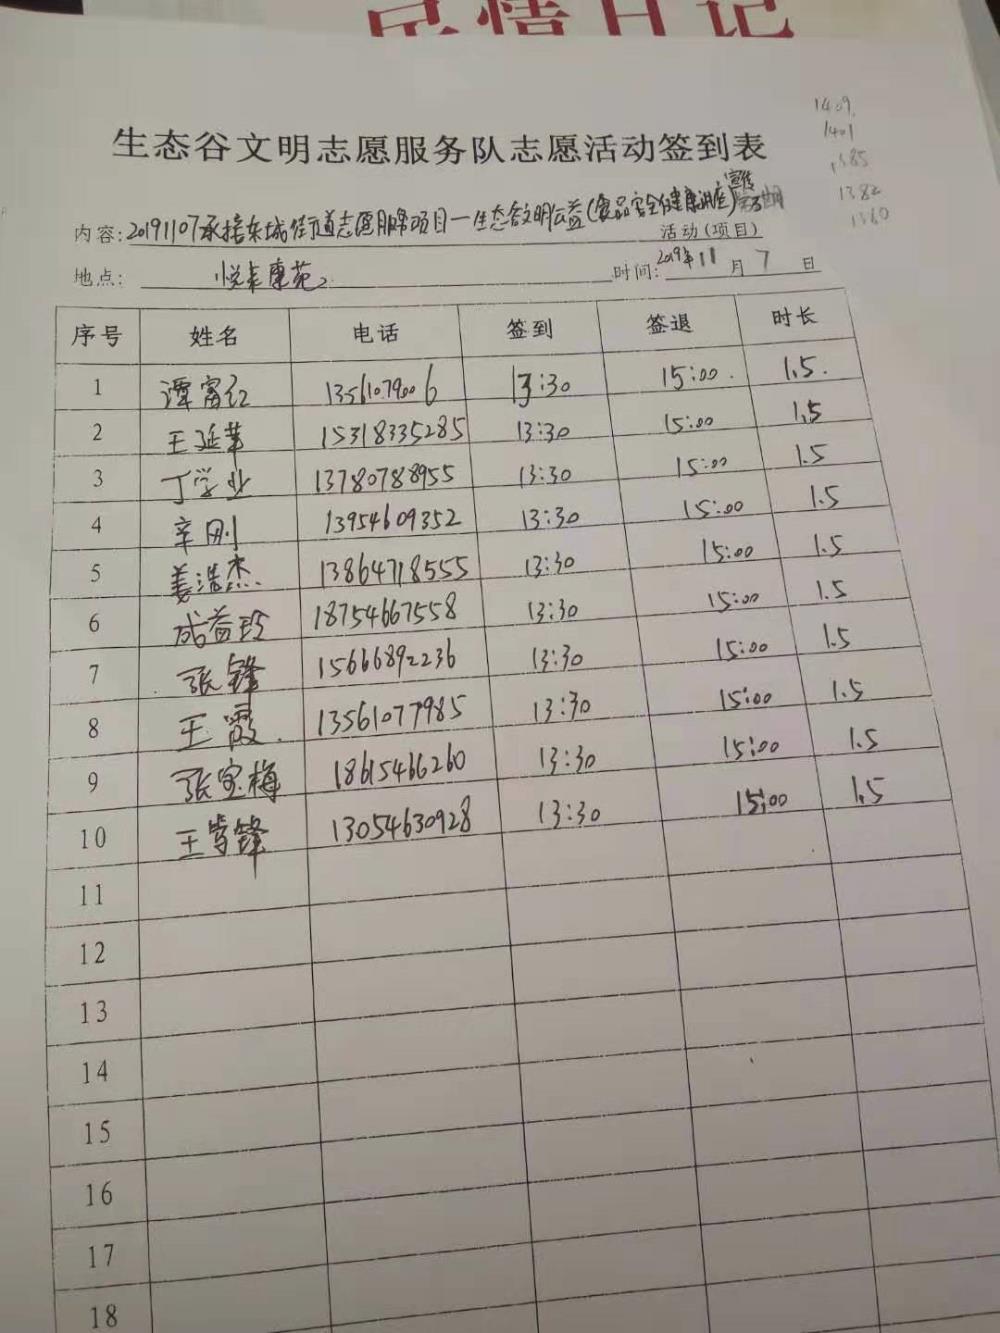 日记
1409.
1401
1385
1382
1360
生态谷文明志愿服务队志愿活动签到表
内容:20191107承接东城街道志愿服务项目一生态谷文明公益(食品安全健康讲座)宣传 活动(项目)
地点: 悦来康苑 时间:2019年11月7日
序号 姓名 电话 签到 签退 时长
1 谭富红 13561079006 13:30 15:00. 1.5.
2 王延革 15318335285 13:30 15:00 1.5
3 丁学业 13780788955 13:30 15:00 1.5
4 辛刚 13954609352 13:30 15:00 1.5
5 姜浩杰 13864718555 13:30 15:00 1.5
6 成益玲 18754667558 13:30 15:00 1.5
7 张锋 15666892236 13:30 15:00 1.5
8 王霞. 13561077985 13:30 15:00 1.5
9 张宝梅 18615466260 13:30 15:00 1.5
10 王 锋 13054630928 13:30 15:00 1.5
11
12
13
14
15
16
17
18